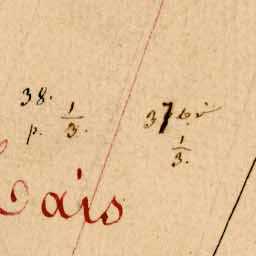 38.
p. 1/3.
37 bis
1/3.